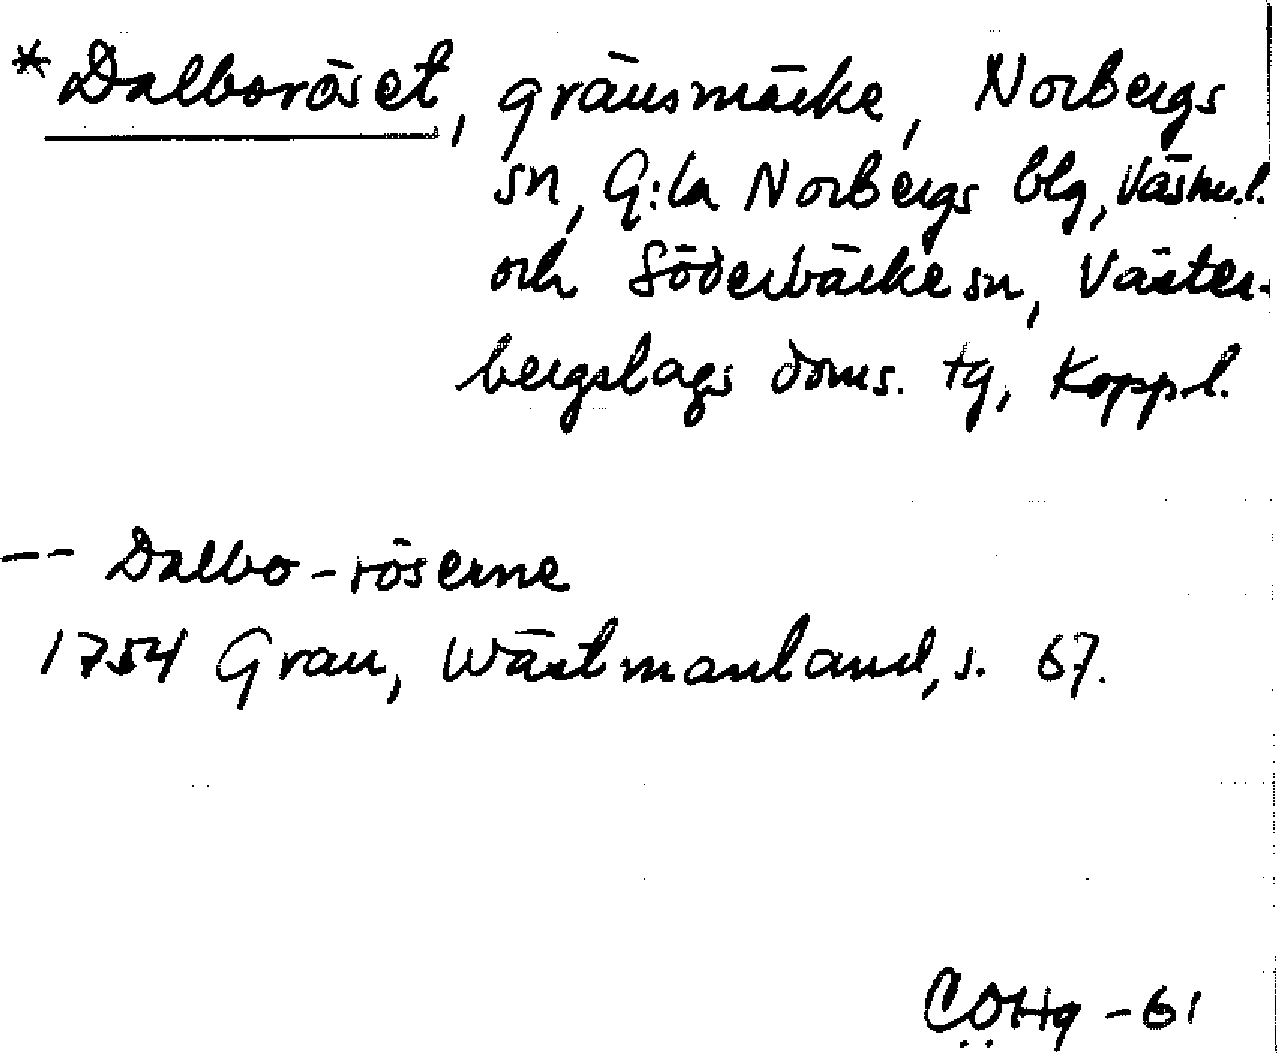 *Dalboröset, gränsmärke, Norbergs
sn, G:la Norbergs blg, Västm.l.
och Söderbärke sn, Väster-
bergslags doms. tg, Koppl.
-- Dalbo-röserne
1754 Grau, Wästmanland, s. 67.
CÖHg -61